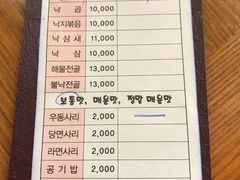 낙 곱 10,000
낙지볶음 10,000
낙 삼 새 11,000
낙 삼 10,000
해물전골 13,000
불낙전골 13,000
보통맛, 매운맛, 정말 매운맛
우동사리 2,000
당면사리 2,000
라면사리 2,000
공 기 밥 2,000